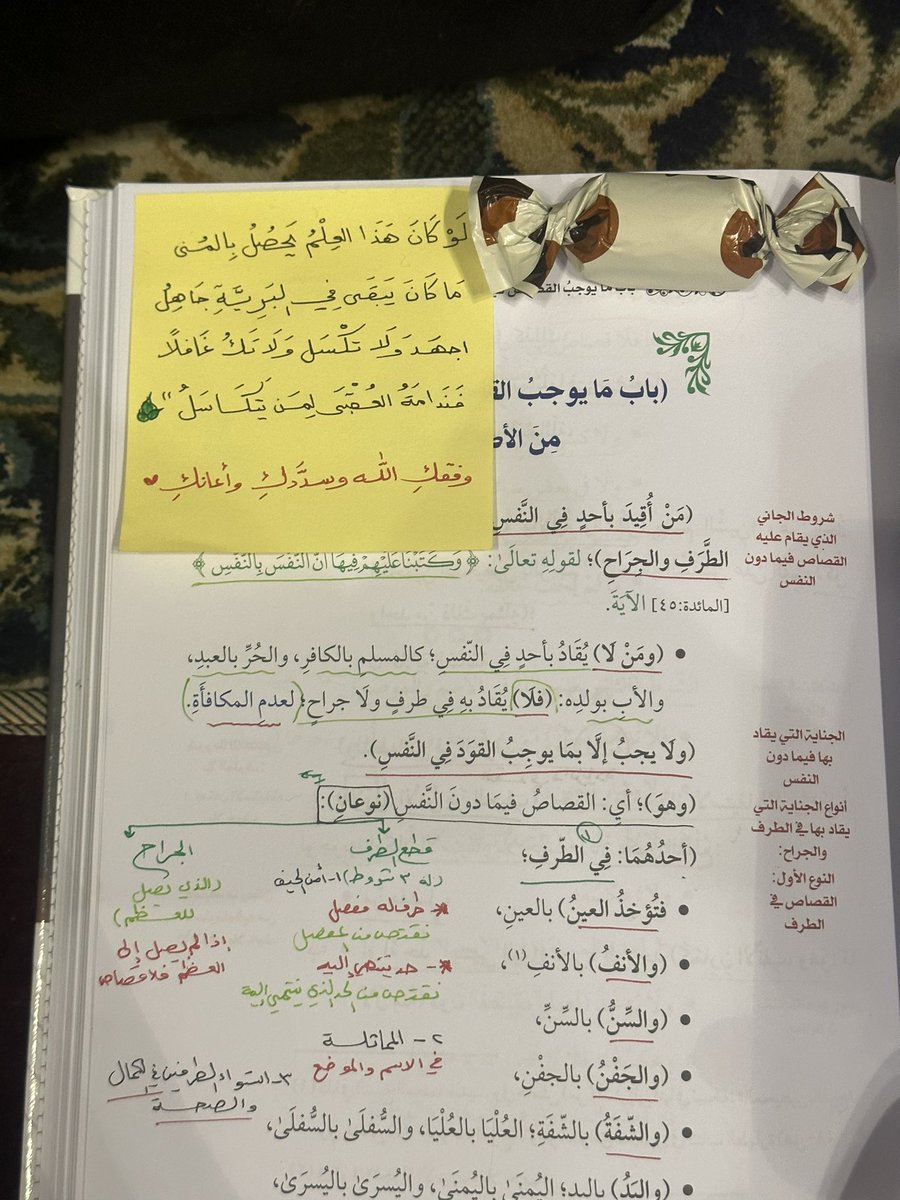 لَوْ كَانَ هَذَا العِلْمُ يَحْصُلُ بِالمُنى
مَا كَانَ يَبْقَى فِي البَرِيَّةِ جَاهِلُ
اجهَد وَلَا تكْسَل وَلَا تَكُ غَافلًا
فَنَدامَةُ العُقْبَى لِمَن يَتَكَاسَلُ"
وفقكِ الله وسدَّدكِ وأعانكِ
بابُ مَا يوجبُ القصاص
(بابُ مَا يوجبُ
مِنَ
(مَنْ أُقِيدَ بأحدٍ فِي النَّفسِ
الطَّرَفِ والجِرَاحِ)؛ لقولِهِ تعالَىٰ: ﴿وَكَتَبْنَا عَلَيْهِمْ فِيهَا أَنَّ النَّفْسَ بِالنَّفْسِ﴾
[المائدة:٤٥] الآيَةَ.
شروط الجاني
الذي يقام عليه
القصاص فيما دون
النفس
• (ومَنْ لَا) يُقَادُ بأحدٍ فِي النّفسِ؛ كالمسلمِ بالكافرِ، والحُرِّ بالعبدِ،
والأبِ بولدِه: (فلَا) يُقَادُ بهِ فِي طرفٍ ولَا جراحٍ؛ لعدمِ المكافأَةِ.
(ولَا يجبُ إلَّا بمَا يوجِبُ القوَدَ فِي النَّفسِ).
الجناية التي يقاد
بها فيما دون
النفس
(وهوَ)؛ أي: القصاصُ فيمَا دونَ النَّفسِ (نوعانِ):
أنواع الجناية التي
يقاد بها في الطرف
والجراح:
النوع الأول:
القصاص في
الطرف
(أحدُهُمَا: فِي الطّرفِ؛
قطع الطرف
الجراح
(له ٣ شروط) ١- أمن الحيف
(الذي يصل
للعظم)
• فتُؤخذُ العينُ) بالعينِ،
* طرف له مفصل
نقتص من المفصل
إذا لم يصل إلى
العظم فلا قصاص
• (والأنفُ) بالأنفِ(١)،
*- حد ينتهي إليه
نقتص من الحد الذي ينتهي إليه
• (والسِّنُّ) بالسِّنِّ،
٢- المماثلة
في الاسم والموضع
• (والجَفْنُ) بالجفْنِ،
٣- استواء الطرفين في الكمال
والصحة
• (والشّفَةُ) بالشّفَةِ؛ العُلْيَا بالعُلْيَا، والسُّفلَىٰ بالسُّفلَىٰ،
• (واليَدُ) باليدِ؛ اليُمنَىٰ باليُمنَىٰ، واليُسرَىٰ باليُسرَىٰ،